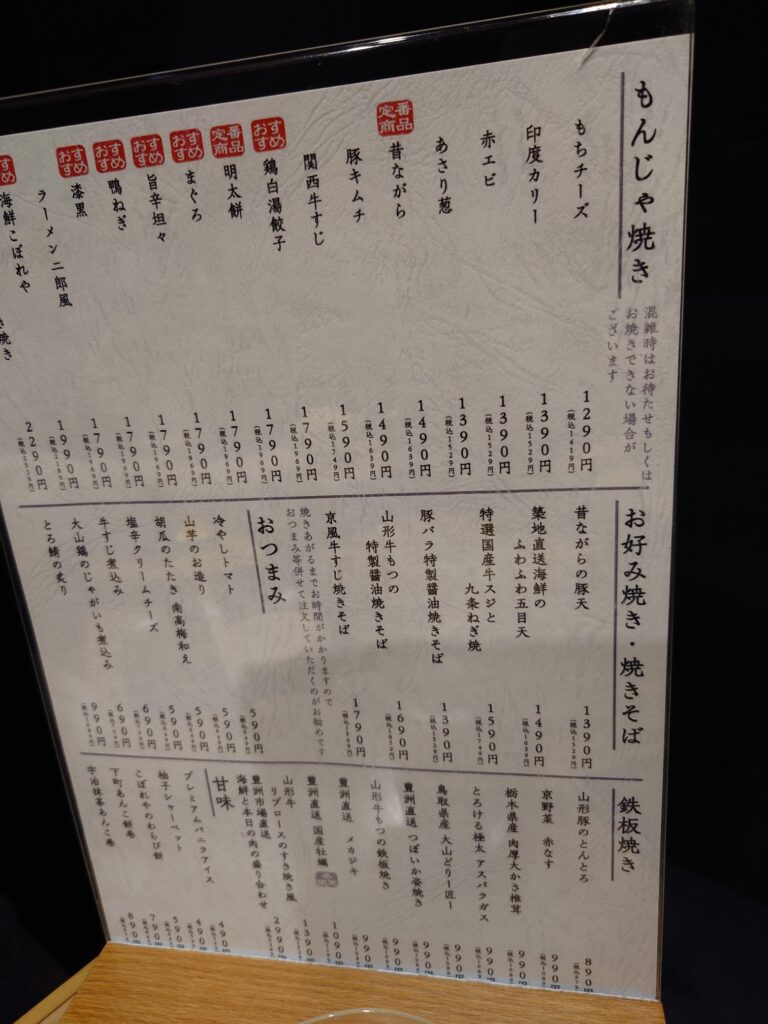 もんじゃ焼き
混雑時はお待たせもしくは
お焼きできない場合が
ございます
もちチーズ
1290円
(税込1419円)
印度カリー
1390円
(税込1529円)
赤エビ
1390円
(税込1529円)
あさり葱
1390円
(税込1529円)
定番商品
昔ながら
1490円
(税込1639円)
豚キムチ
1490円
(税込1639円)
関西牛すじ
1590円
(税込1749円)
おすすめ
鶏白湯餃子
1790円
(税込1969円)
定番商品
明太餅
1790円
(税込1969円)
おすすめ
まぐろ
1790円
(税込1969円)
おすすめ
旨辛坦々
1790円
(税込1969円)
おすすめ
鴨ねぎ
1790円
(税込1969円)
おすすめ
漆黒
1790円
(税込1969円)
ラーメン二郎風
1990円
(税込2189円)
すめ
海鮮こぼれや
き焼き
2290円
(税込2519円)
お好み焼き・焼きそば
昔ながらの豚天
1390円
(税込1529円)
築地直送海鮮の
ふわふわ五目天
1490円
(税込1639円)
特選国産牛スジと
九条ねぎ焼
1590円
(税込1749円)
豚バラ特製醤油焼きそば
1390円
(税込1529円)
山形牛もつの
特製醤油焼きそば
1690円
(税込1859円)
京風牛すじ焼きそば
1790円
(税込1969円)
焼きあがるまでお時間がかかりますので
おつまみ等併せて注文していただくのがお勧めです
おつまみ
冷やしトマト
590円
(税込649円)
山芋のお造り
590円
(税込649円)
胡瓜のたたき 南高梅和え
590円
(税込649円)
塩辛クリームチーズ
590円
(税込649円)
牛すじ煮込み
690円
(税込759円)
大山鶏のじゃがいも煮込み
690円
(税込759円)
とろ鯖の炙り
990円
(税込1089円)
鉄板焼き
山形豚のとんとろ
890円
京野菜 赤なす
990円
栃木県産 肉厚大かさ椎茸
990円
とろける極太 アスパラガス
990円
鳥取県産 大山どりー匠ー
990円
豊洲直送 つぼいか姿焼き
990円
山形牛もつの鉄板焼き
990円
豊洲直送 メカジキ
990円
豊洲直送 国産牡蠣
1090円
山形牛
リブロースのすき焼き風
1390円
豊洲市場直送
海鮮と本日の肉の盛り合わせ
2990円
甘味
プレミアムバニラアイス
490円
柚子シャーベット
490円
こぼれやのわらび餅
590円
下町あんこ餅巻
790円
宇治抹茶あんこ巻
890円